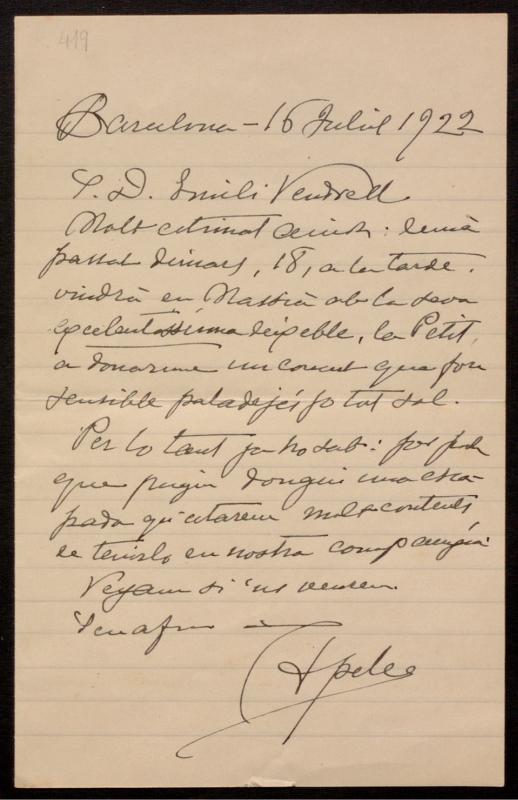 419
Barcelona - 16 Juliol 1922
S. D. Emili Vendrell
Molt estimat amich: demà
passat dimars, 18, a la tarde.
vindrà en Massià ab la seva
excelentíssima deixeble, la Petit,
a donarme un concert que fora
sensible paladejés jo tot sol.
Per lo tant ja ho sab: por poch
que pugui dongui una esca-
pada qu'estarem molt contents
de tenirlo en nostra companyia
Vejam si 'ns veurem
Seu afm
Apeles